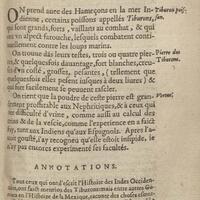 ON prend auec des Hameçons en la mer In-
dienne, certains poissons appellés Tiburons,
qui sont grands, forts, vaillans au combat, & qui
ont vn aspect farouche, lesquels combatent conti-
nuellement contre les loups marins.
On trouue dãs leurs testes, trois ou quatre pier-
res, & quelquesfois dauantage, fort blanches, creu-
ses d'vn costé, grosses, pesantes, tellement que
quelquesfois elles pesent iusques à deux liures; &
qui sont faciles à mettre en poudre.
On tient que la poudre de ceste pierre est gran-
dement proufitable aux Nephritiques, & à ceux qui
ont difficulté d'vrine, comme aussi au calcul des
reins & de la vescie, comme d'experience en a faict
foy, tant aux Indiens qu'aux Espagnols. Apres l'a-
uoir goustée, i'ay recogneu estre insipide, ie ne
l'ay pas encore experimentée
ANNOTATIONS.
Tous ceux qui ont escrit l'Histoire des Indes Occiden-
tales, ont faict mention des Tiburons: mais entre autres
en l'Histoire de la Mexique, raconte des choses
Tiburon poiſ-
ſon.
Pierre des
Tiburons.
Vertus.